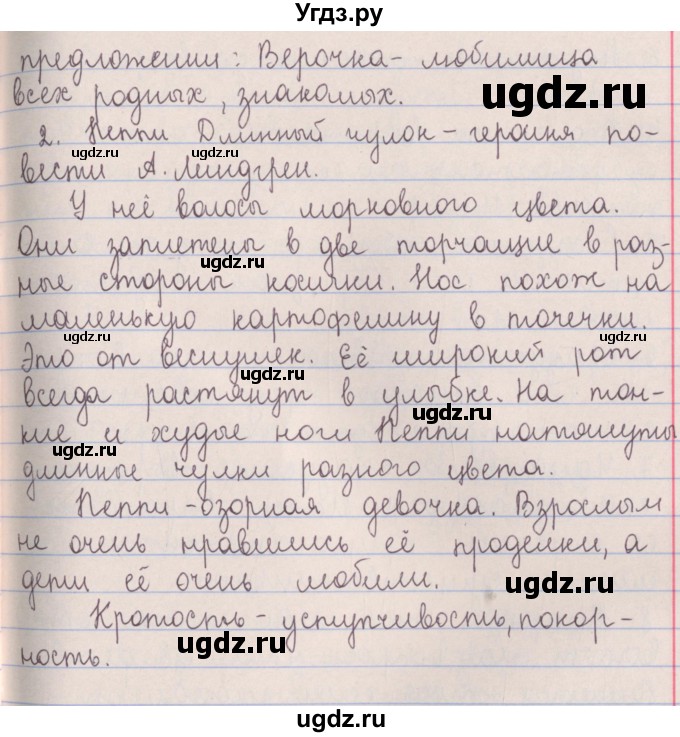 Угдз.ру
предложении: Верочка - любимица
всех родных, знакомых.
ugdz.ru
2. Пеппи Длинный чулок - героиня по-
ugdz.ru ugdz.ru
вести А. Линдгрен.
У неё волосы морковного цвета.
Они заплетены в две торчащие в раз-
ugdz.ru
ные стороны косички. Нос похож на
маленькую картофелину в точечки.
ugdz.ru ugdz.ru
Это от веснушек. Её широкий рот
ugdz.ru
всегда растянут в улыбке. На тон-
ugdz.ru
кие и худые ноги Пеппи натянуты
ugdz.ru
длинные чулки разного цвета.
Пеппи - озорная девочка. Взрослым
ugdz.ru
не очень нравились её проделки, а
дети её очень любили.
ugdz.ru
Кротость - уступчивость, покор-
ugdz.ru
ность.
ugdz.ru